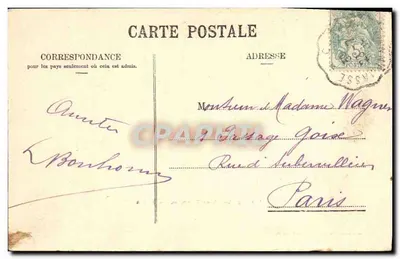 CARTE POSTALE
CORRESPONDANCE
pour les pays seulement où cela est admis.
ADRESSE
Amitiés
L Bonhomme
Monsieur & Madame Wagner
Passage
Rue d'Aubervilliers
Paris